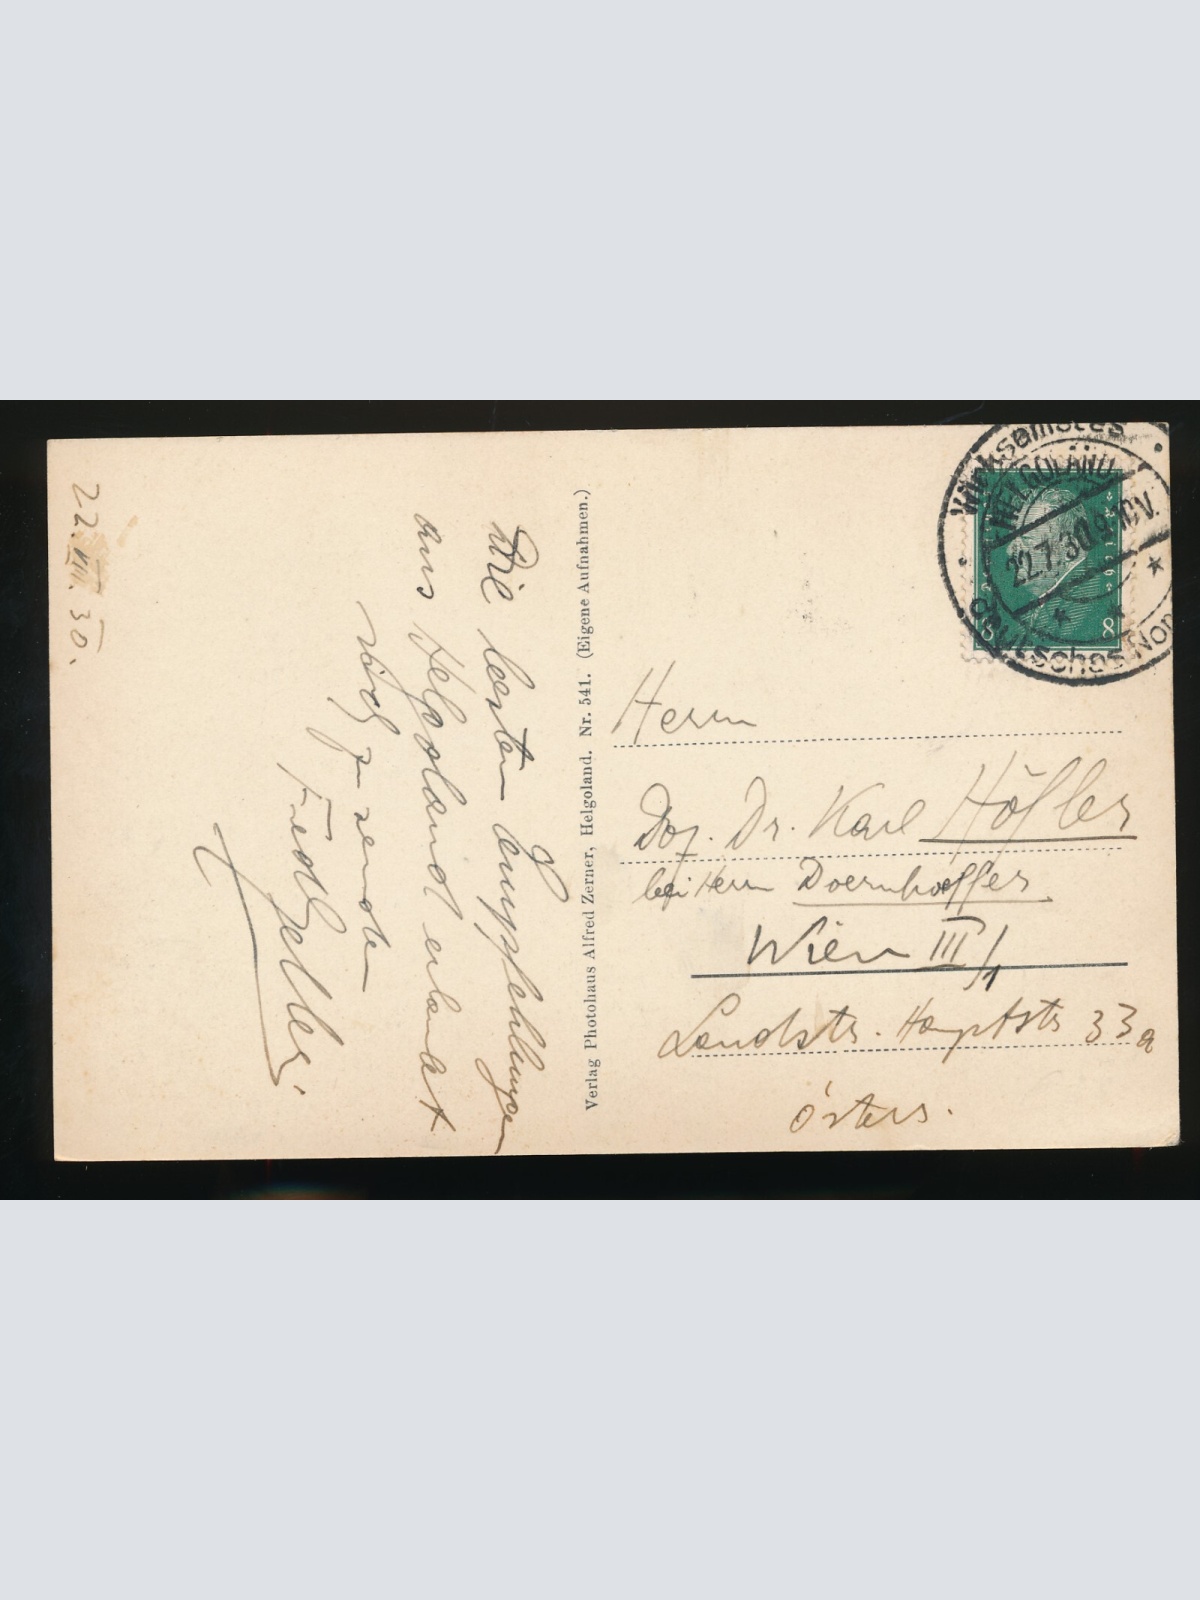 22. VII. 30.
Die besten Empfehlungen
aus Helgoland erlaubt
sich zu senden
Verlag Photohaus Alfred Zerner, Helgoland. Nr. 541. (Eigene Aufnahmen.)
Wirksamstes
HELGOLAND
22.7.30 9-10V.
deutsches Nor
8 8
Herrn
Doz. Dr. Karl Höfler
bei Herrn Doernhoeffer
Wien III/1
Landstr. Hauptstr 33a
Österr.